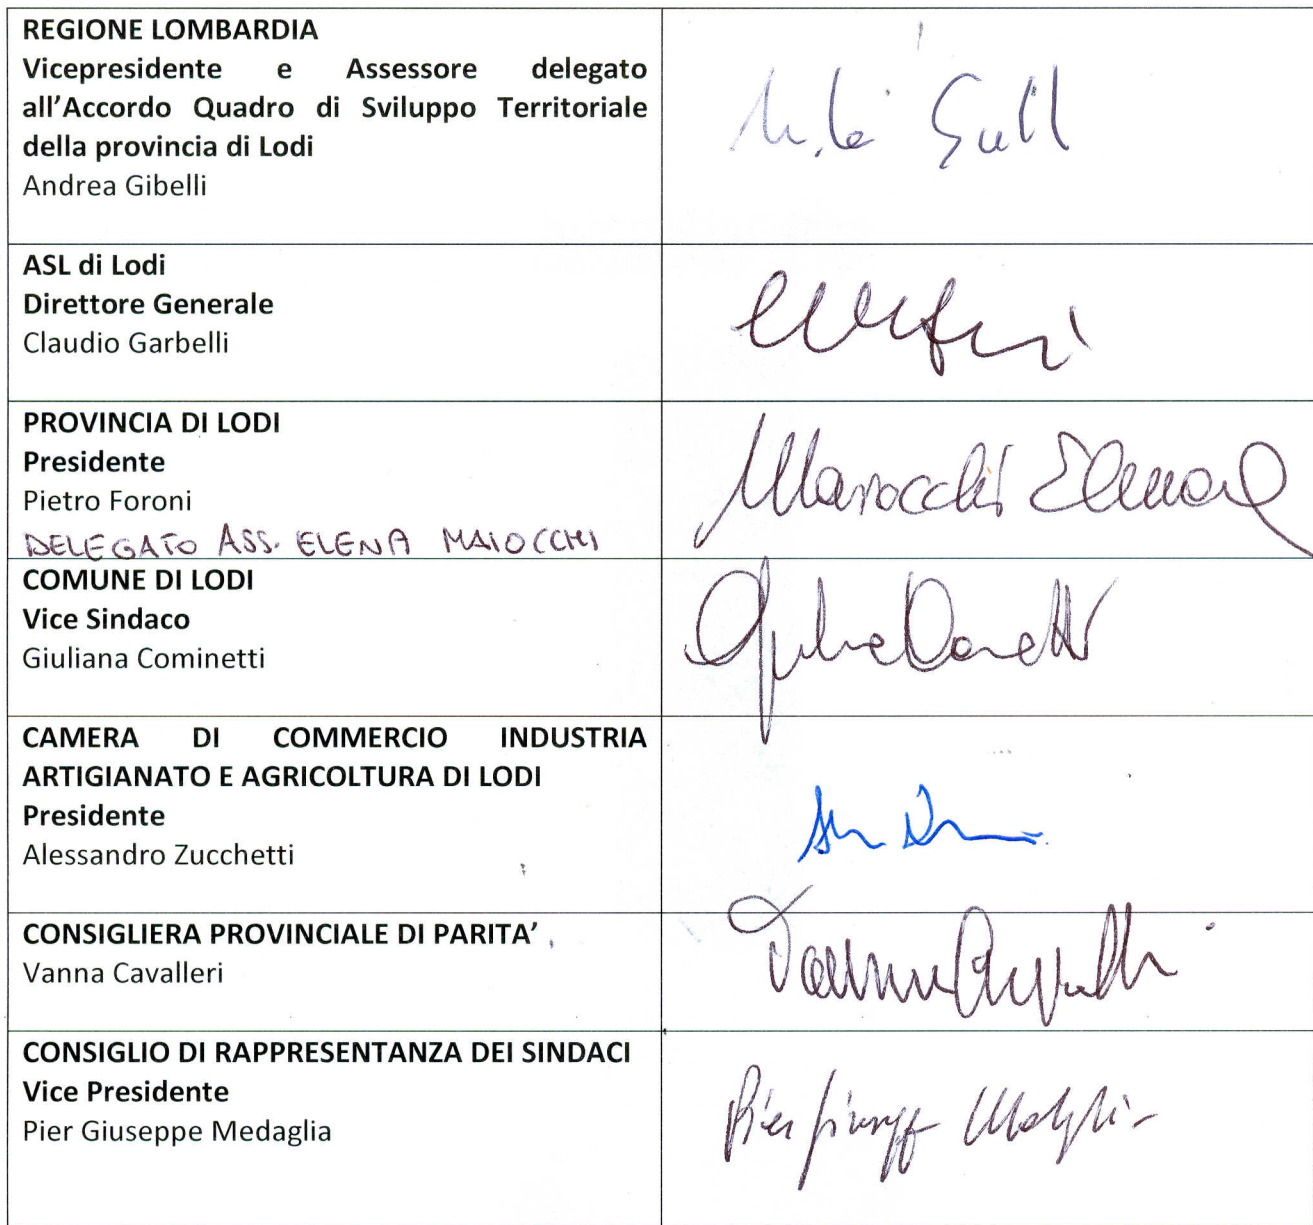 REGIONE LOMBARDIA
Vicepresidente e Assessore delegato
all'Accordo Quadro di Sviluppo Territoriale
della provincia di Lodi
Andrea Gibelli
ASL di Lodi
Direttore Generale
Claudio Garbelli
PROVINCIA DI LODI
Presidente
Pietro Foroni
DELEGATO ASS. ELENA MAIOCCHI
COMUNE DI LODI
Vice Sindaco
Giuliana Cominetti
CAMERA DI COMMERCIO INDUSTRIA
ARTIGIANATO E AGRICOLTURA DI LODI
Presidente
Alessandro Zucchetti
CONSIGLIERA PROVINCIALE DI PARITA'
Vanna Cavalleri
CONSIGLIO DI RAPPRESENTANZA DEI SINDACI
Vice Presidente
Pier Giuseppe Medaglia